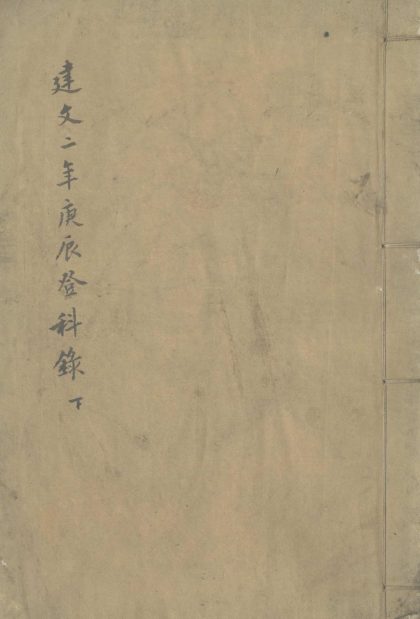 建文二年庚辰登科錄 下